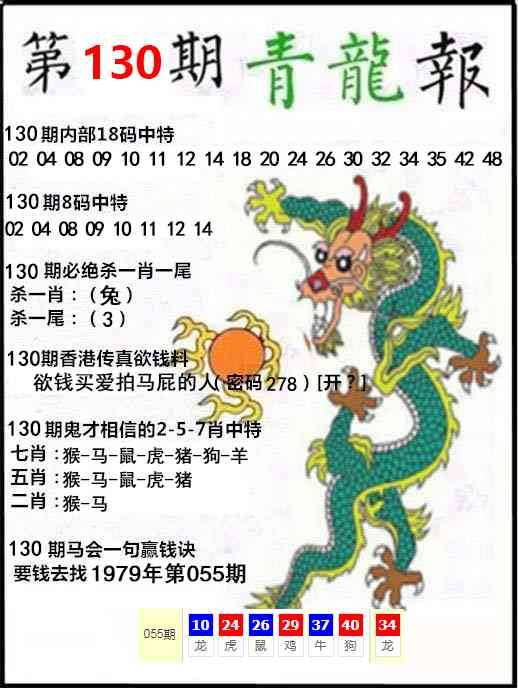 第130期青龍報
130期内部18码中特
02 04 08 09 10 11 12 14 18 20 24 26 30 32 34 35 42 48
130期8码中特
02 04 08 09 10 11 12 14
130 期必绝杀一肖一尾
杀一肖：（兔）
杀一尾：（3）
130期香港传真欲钱料
欲钱买爱拍马屁的人(密码278）[开？]
130期鬼才相信的2-5-7肖中特
七肖：猴-马-鼠-虎-猪-狗-羊
五肖：猴-马-鼠-虎-猪
二肖：猴-马
130 期马会一句赢钱诀
要钱去找1979年第055期
055期 10 24 26 29 37 40 34
龙 虎 鼠 鸡 牛 狗 龙